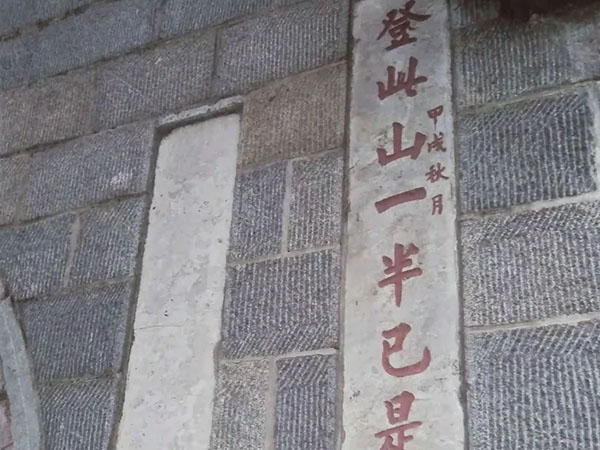 登此山一半已是
甲戌秋月